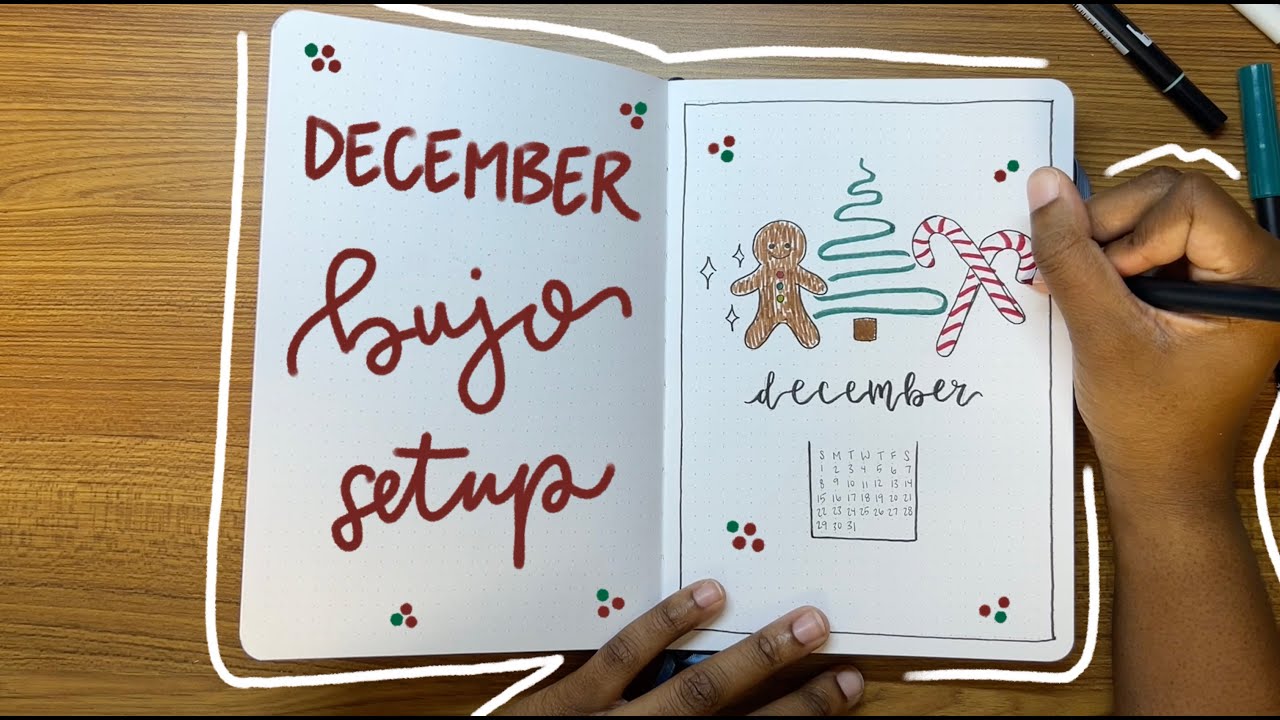 DECEMBER
bujo
setup
december
S M T W T F S
1 2 3 4 5 6 7
8 9 10 11 12 13 14
15 16 17 18 19 20 21
22 23 24 25 26 27 28
29 30 31